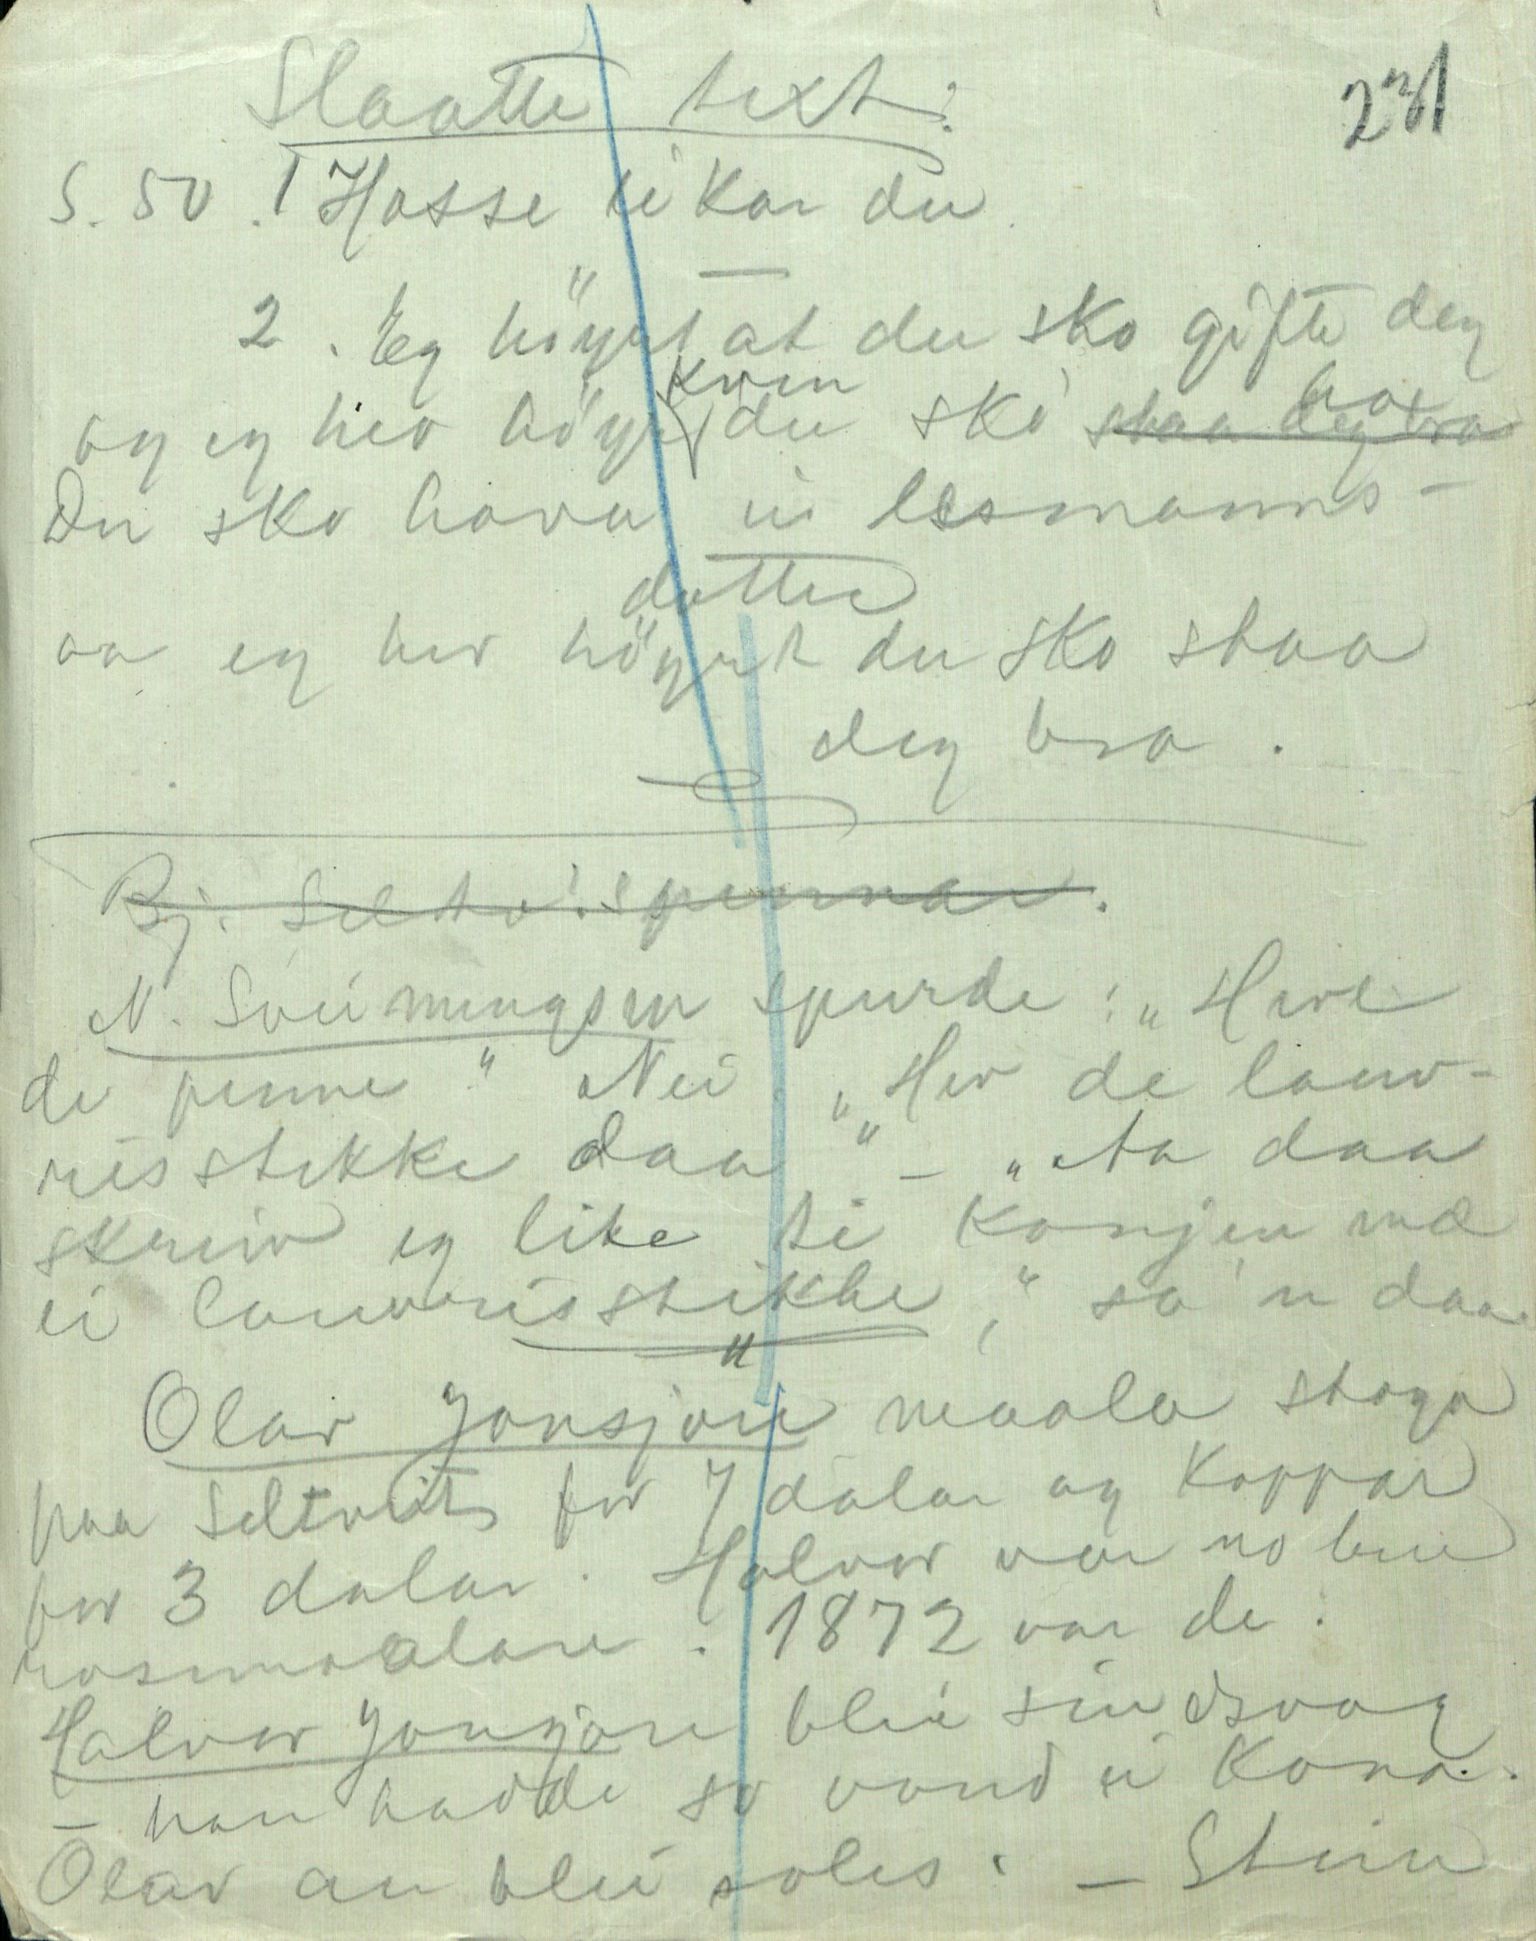 Slaatte text:
231
S. 50. 1 Hosse li kar du
2. Eg höyrt at du sko gifte deg
og eg hev höyrt kven du sko ha
staa deg bra
Du sko hava ei lesmanns-
dotter
aa eg hev höyrt du sko staa
deg bra.
Bj. Selto: spurnar.
N. Sveinungsen spurde: „Have
de penne" Nei. „Hev de lauv-
risstikke daa" – „Aa daa
skreiv eg like ti Konjen mæ
ei lauvrisstikke," sa 'n daa.
Olav Jonsjore maala stoga
paa Seltveit for 7 dalar og Koppar
for 3 dalar. Halvor var no bere
rosemaalare. 1872 var de.
Halvor Jonsjore blei sindsvag
– han hadde so vond ei Kona.
Olav au blei soles. – Stein